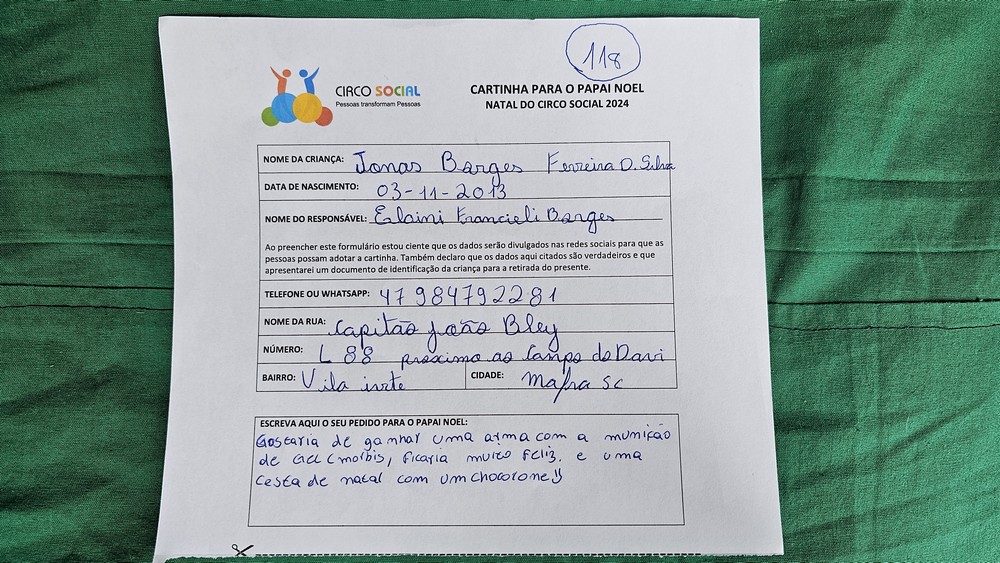 118
CIRCO SOCIAL
Pessoas transformam Pessoas
CARTINHA PARA O PAPAI NOEL
NATAL DO CIRCO SOCIAL 2024
NOME DA CRIANÇA: Jonas Borges Ferreira D. Silva
DATA DE NASCIMENTO: 03-11-2013
NOME DO RESPONSÁVEL: Elaini Francieli Borges
Ao preencher este formulário estou ciente que os dados serão divulgados nas redes sociais para que as
pessoas possam adotar a cartinha. Também declaro que os dados aqui citados são verdadeiros e que
apresentarei um documento de identificação da criança para a retirada do presente.
TELEFONE OU WHATSAPP: 47 984792281
NOME DA RUA: Capitão João Bley
NÚMERO: L 88 proximo ao Campo do Davi
BAIRRO: Vila ivete CIDADE: Mafra SC
ESCREVA AQUI O SEU PEDIDO PARA O PAPAI NOEL:
Gostaria de ganhar uma arma com a munição
de Gel (morbis, Ficaria muito Feliz. e uma
Cesta de natal com um chocotone